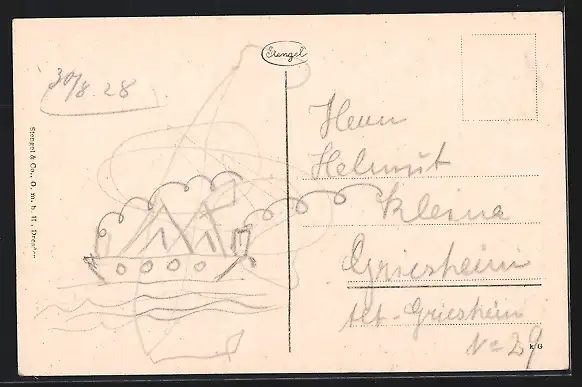 Stengel
30/8 28
Stengel & Co., G. m. b. H., Dresden
Herrn
Helmut
Kleine
Griesheim
Alt-Griesheim
No 29
K/G